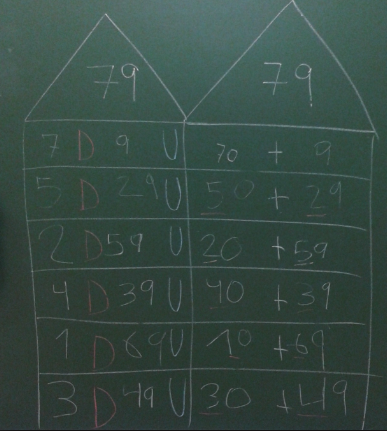 79 79
7 D 9 U 70 + 9
5 D 29 U 50 + 29
2 D 59 U 20 + 59
4 D 39 U 40 + 39
1 D 69 U 10 + 69
3 D 49 U 30 + 49